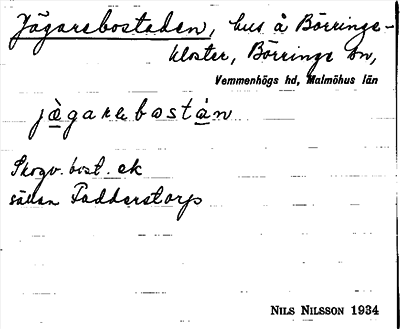 Jägarebostaden, hus å Börringe-
kloster, Börringe sn,
Vemmenhögs hd, Malmöhus län
jägarebostan
Skogv. bost. ek
sävan Fadderstorp
NILS NILSSON 1934